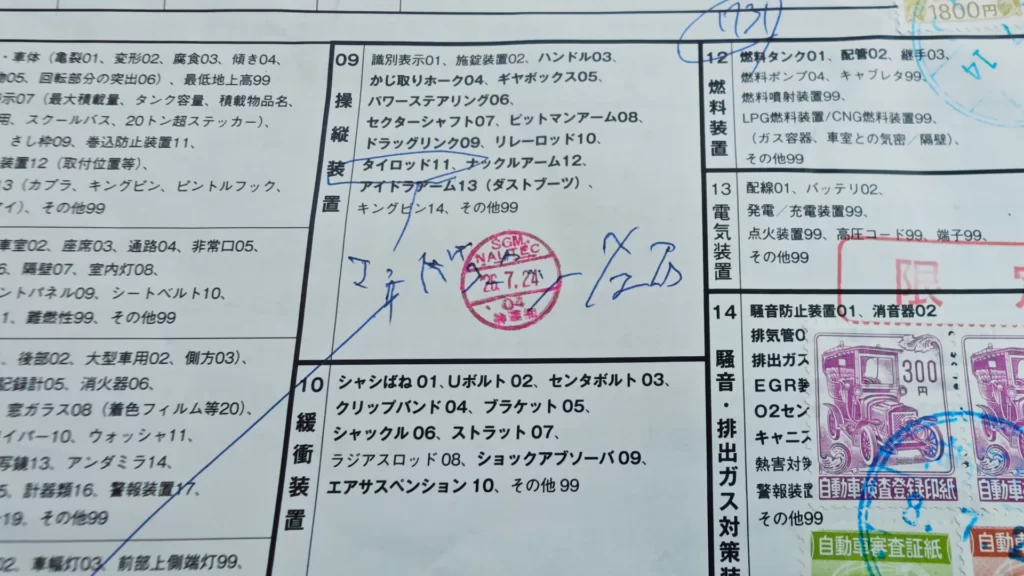 ・車体（亀裂01、変形02、腐食03、傾き04、
物05、回転部分の突出06）、最低地上高99
示07（最大積載量、タンク容量、積載物品名、
用、スクールバス、20トン超ステッカー）、
さし枠09、巻込防止装置11、
装置12（取付位置等）、
13（カプラ、キングピン、ピントルフック、
アイ）、その他99
車室02、座席03、通路04、非常口05、
6、隔壁07、室内灯08、
ントパネル09、シートベルト10、
1、難燃性99、その他99
、後部02、大型車用02、側方03）、
記録計05、消火器06、
窓ガラス08（着色フィルム等20）、
イパー10、ウォッシャ11、
写鏡13、アンダミラ14、
5、計器類16、警報装置17、
19、その他99
02、車幅灯03、前部上側端灯99、
09 操縦装置
識別表示01、施錠装置02、ハンドル03、
かじ取りホーク04、ギヤボックス05、
パワーステアリング06、
セクターシャフト07、ピットマンアーム08、
ドラッグリンク09、リレーロッド10、
タイロッド11、ナックルアーム12、
アイドラアーム13（ダストブーツ）、
キングピン14、その他99
SGM
NALTEC
26.7.24
04
10 緩衝装置
シャシばね01、Uボルト02、センタボルト03、
クリップバンド04、ブラケット05、
シャックル06、ストラット07、
ラジアスロッド08、ショックアブソーバ09、
エアサスペンション10、その他99
1731
1800円
12 燃料装置
燃料タンク01、配管02、継手03、
燃料ポンプ04、キャブレタ99、
燃料噴射装置99、
LPG燃料装置/CNG燃料装置99、
（ガス容器、車室との気密／隔壁）、
その他99
13 電気装置
配線01、バッテリ02、
発電／充電装置99、
点火装置99、高圧コード99、端子99、
その他99
限
14 騒音・排出ガス対策装
騒音防止装置01、消音器02
排気管0
排出ガス
EGR
O2セン
キャニス
熱害対
警報装置
その他99
300
円
自動車検査登録印紙
自動車
自動車審査証紙
自動車